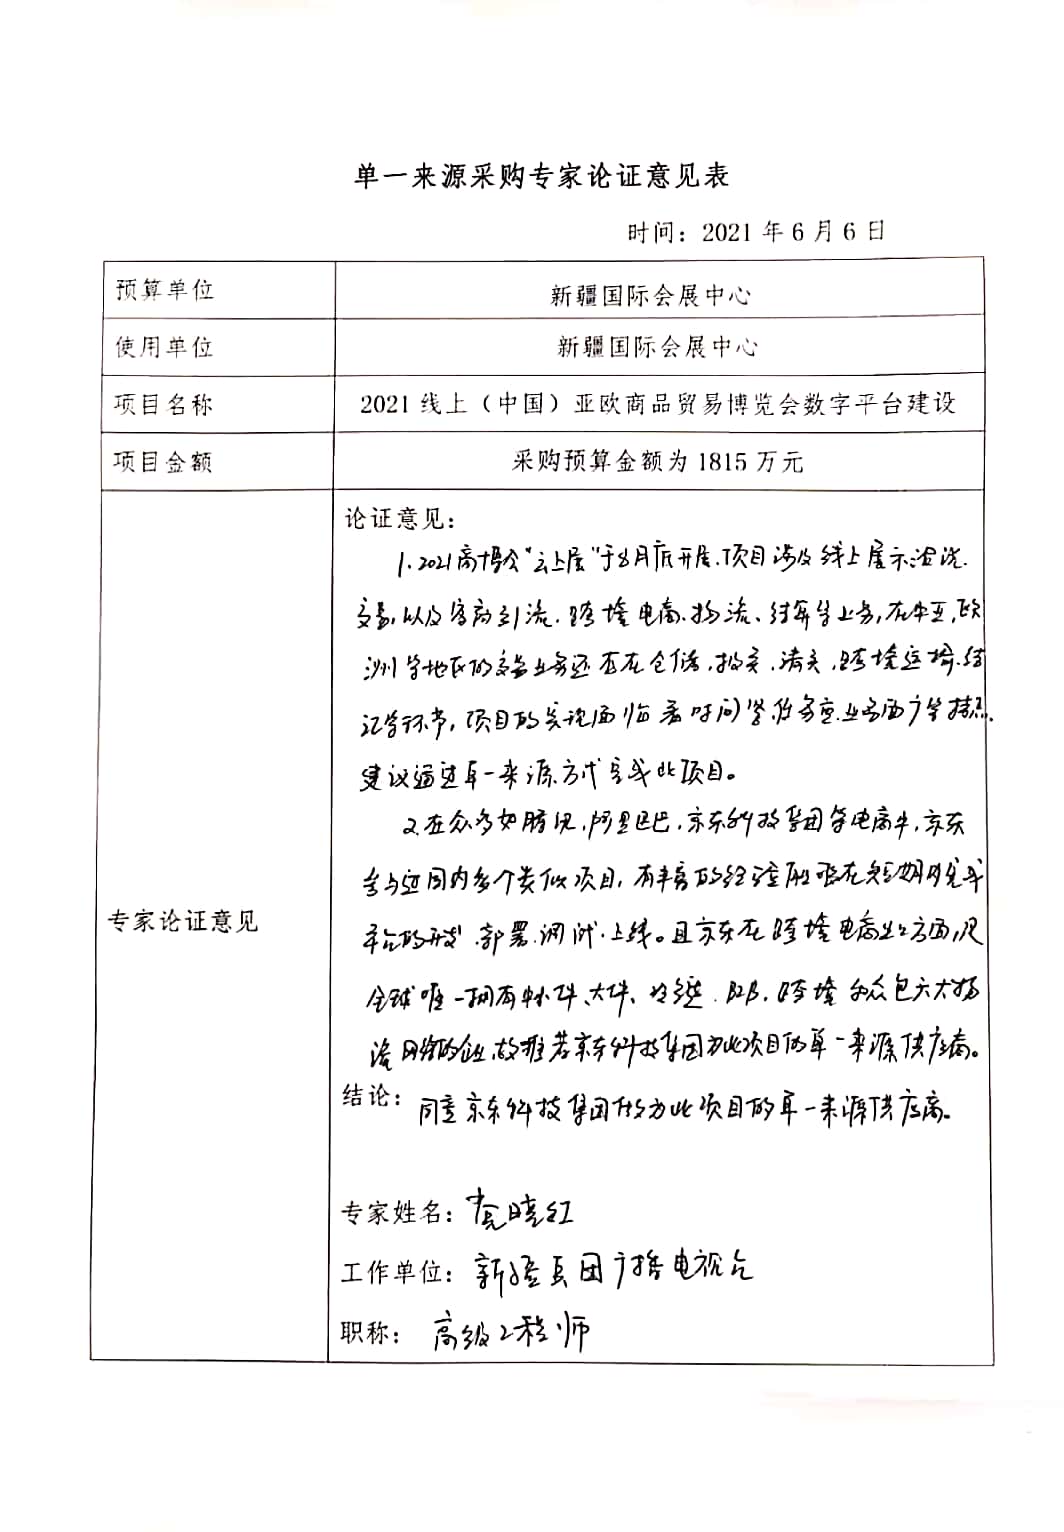 单一来源采购专家论证意见表
时间：2021 年 6 月 6 日
预算单位 新疆国际会展中心
使用单位 新疆国际会展中心
项目名称 2021 线上（中国）亚欧商品贸易博览会数字平台建设
项目金额 采购预算金额为 1815 万元
专家论证意见
论证意见：
1.2021商博会“云上展”于8月底开展.项目涉及线上展示.洽谈.
交易,以及客商引流.跨境电商.物流、结算等业务,在中亚,欧
洲等地区的交易业务还存在仓储,报关.清关,跨境运输.结
汇等环节,项目的实现面临着时间紧.任务重.业务面广等特点.
建议通过单一来源方式完成此项目。
2.在众多如腾讯.阿里巴巴.京东科技集团等电商中,京东
参与过国内多个类似项目,有丰富的经验能在短期内完成
平台的开发.部署.调试.上线。且京东在跨境电商业务方面,是
全球唯一拥有中小件、大件、冷链.B2B.跨境和众包六大物
流网络的企业,故推荐京东科技集团为此项目的单一来源供应商。
结论：同意京东科技集团作为此项目的单一来源供应商。
专家姓名： 晓红
工作单位：新疆兵团广播电视台
职称：高级工程师